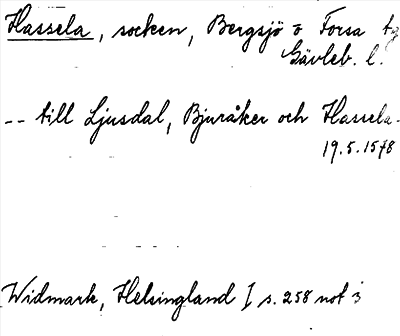 Hassela, socken, Bergsjö o Forsa tg
Gävleb. l.
-- till Ljusdal, Bjuråker och Hassela.
19.5.1578
Widmark, Helsingland I s. 258 not 3